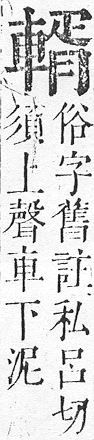 䡎
俗字舊註私呂切
須上聲車下泥